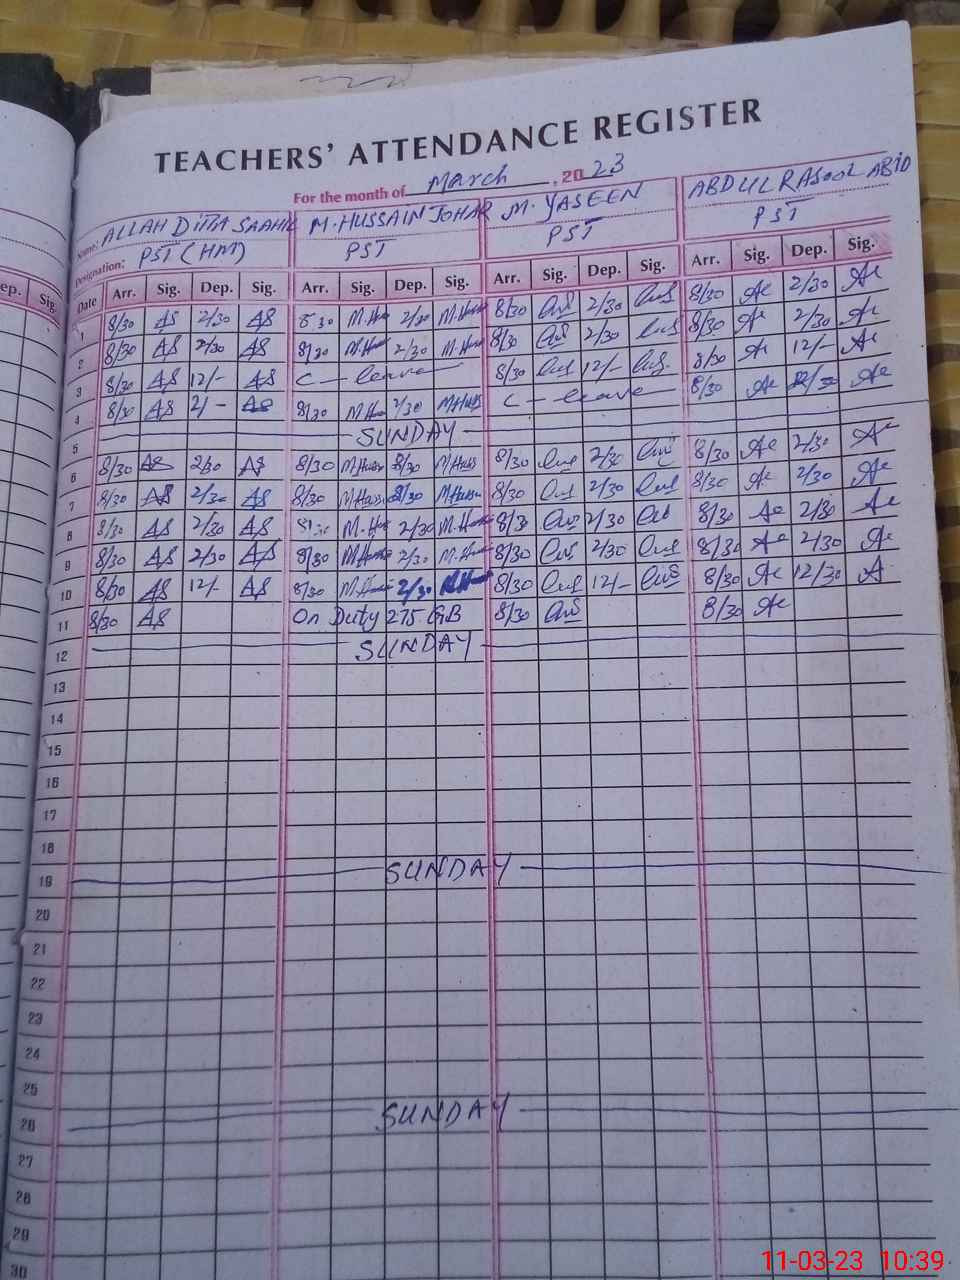 TEACHERS' ATTENDANCE REGISTER
For the month of March, 2023
Name: ALLAH DITTA M. HUSSAIN JOHAR M. YASEEN ABDUL RASOOL ABID
Designation: PST (HM) PST PST PST
ep. Sig. Date Arr. Sig. Dep. Sig. Arr. Sig. Dep. Sig. Arr. Sig. Dep. Sig. Arr. Sig. Dep. Sig.
1 8/30 AS 2/30 AS 8 30 2/30 8/30 2/30 8/30 2/30
2 8/30 AS 2/30 AS 8/30 2/30 8/30 2/30 8/30 2/30
3 8/30 AS 12/- AS C - leave 8/30 12/- 8/30 12/-
4 8/30 AS 2/- AS 8/30 2/30 C - leave 8/30
5 SUNDAY
6 8/30 AS 2/30 AS 8/30 8/30 2/30 8/30 2/30
7 8/30 AS 2/30 AS 8/30 8/30 2/30 8/30 2/30
8 8/30 AS 2/30 AS 2/30 8/30 2/30 8/30 2/30
9 8/30 AS 2/30 AS 8/30 2/30 8/30 2/30 8/30 2/30
10 8/30 AS 12/- AS 8/30 2/30 8/30 12/- 8/30 12/30
11 8/30 AS On Duty 275 GB 8/30 8/30
12 SUNDAY
13
14
15
16
17
18
19 SUNDAY
20
21
22
23
24
25
26 SUNDAY
27
28
29
30
11-03-23 10:39